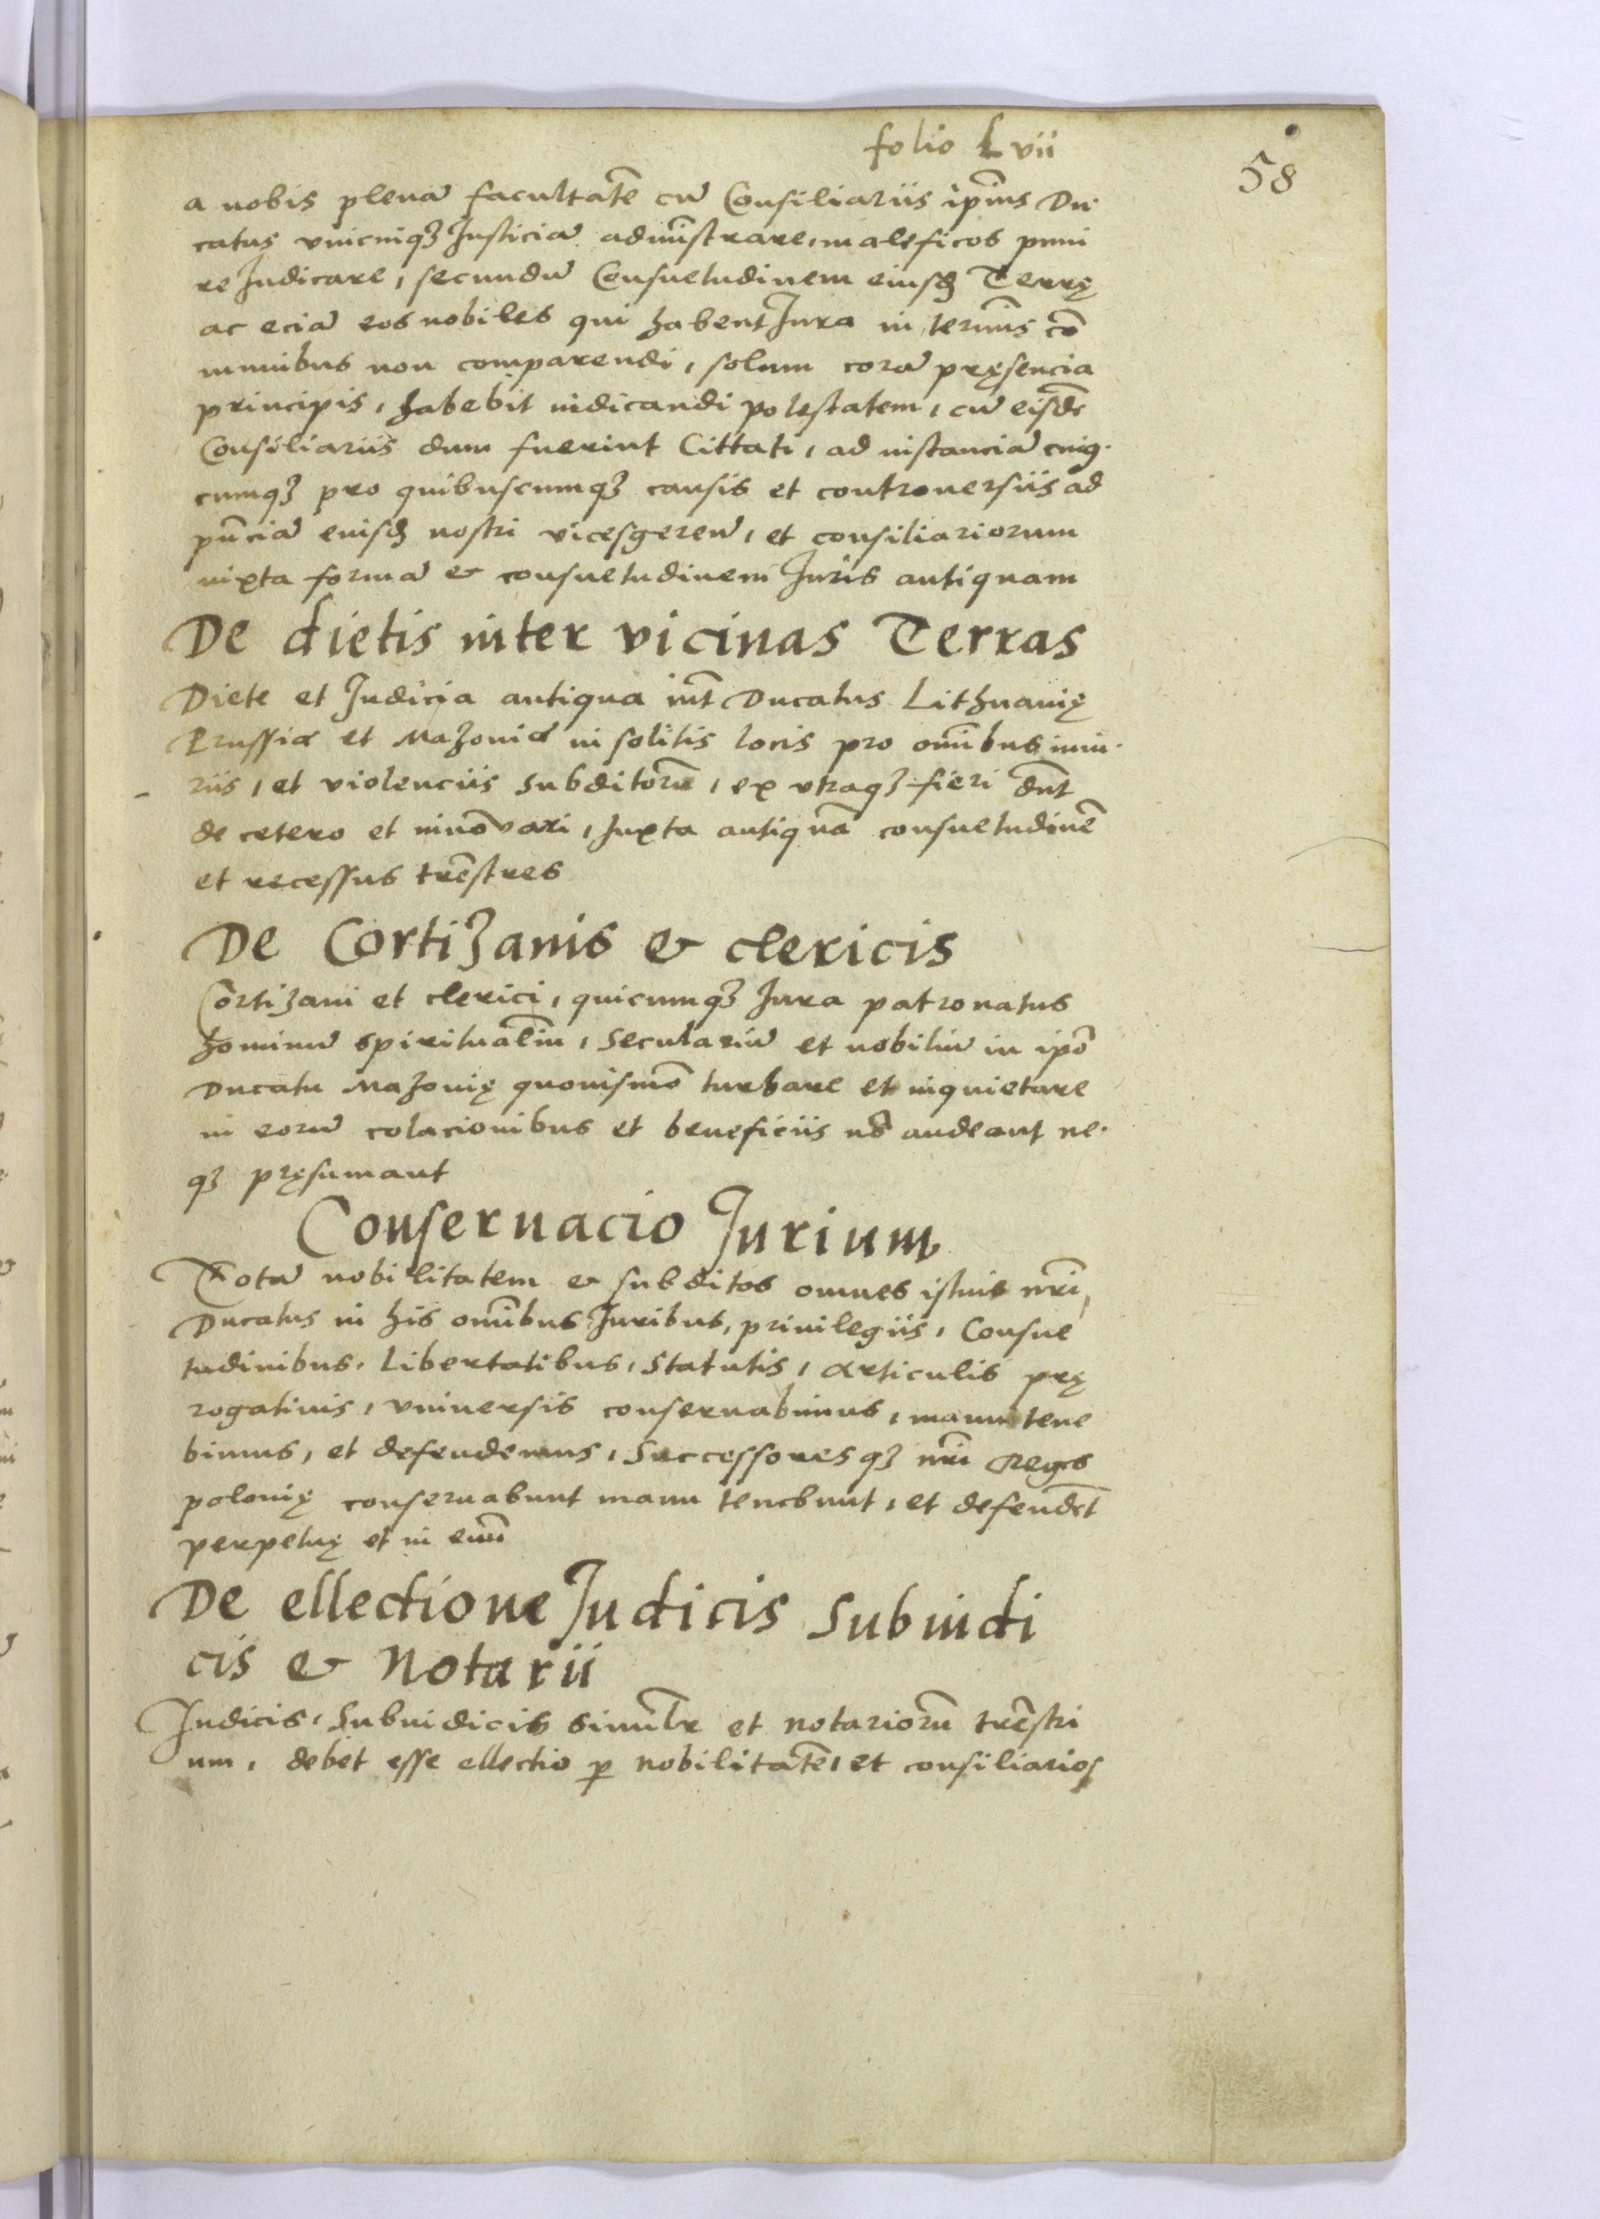 folio Lvii
58
a nobis plenā facultatē cū Consiliariis ip̄ius Du⸗
catus vnicuiqʒ Justiciā admīstrare, maleficos puni
re Judicare, secundū Consuetudinem eiusdē Terrę
ac eciā eos nobiles qui habent Jura in termīs cō
munibus non comparendi, solum corā pręsencia
principis, habebit iudicandi potestatem, cū eisdē
Consiliariis dum fuerint Cittati, ad instanciā cuius⸗
cumqʒ pro quibuscumqʒ causis et controuersiis ad
pn̄ciā euisdē nostri vicesgerenū, et consiliariorum
iuxta formā & consuetudinem Juris antiquam
De dietis inter vicinas Terras
Diete et Judicia antiqua int̄ Ducatus Lithuanię
Prussiæ et Mazoniæ in solitis locis pro om̄ibus iniu⸗
riis, et violenciis subditorū, ex vtraqʒ fieri dn̄t
de cetero et innōvari, Juxta antiquā consuetudinē
et recessus trēstres
De Cortiʒanis & clericis
Cortiʒani et clerici, quicumqʒ Jura patronatus
hominū spiritualiū, seculariū et nobiliū in ipō
Ducatu Mazonię quouismō turbare et inquietare
in eorū colacionibus et beneficiis nō audeant ne⸗
qʒ pręsumant
Conseruacio Jurium
Totā nobilitatem & subditos omnes istius nr̄i
Ducatus in his om̄ibus Juribus, priuilegiis, Consue
tudinibus, libertatibus, statutis, articulis prę
rogatiuis, vniuersis conseruabimus, manutene
bimus, et defendemus, Successoresqʒ nr̄i Reges
polonię conseruabunt manu tenebunt, et defendēt
perpetuę et in euū
De ellectione Judicis Subiudi
cis & Notarii
Judicis, Subiudicis simīlr et notariorū trēstri
um, debet esse ellectio ꝑ nobilitatē, et consiliarios